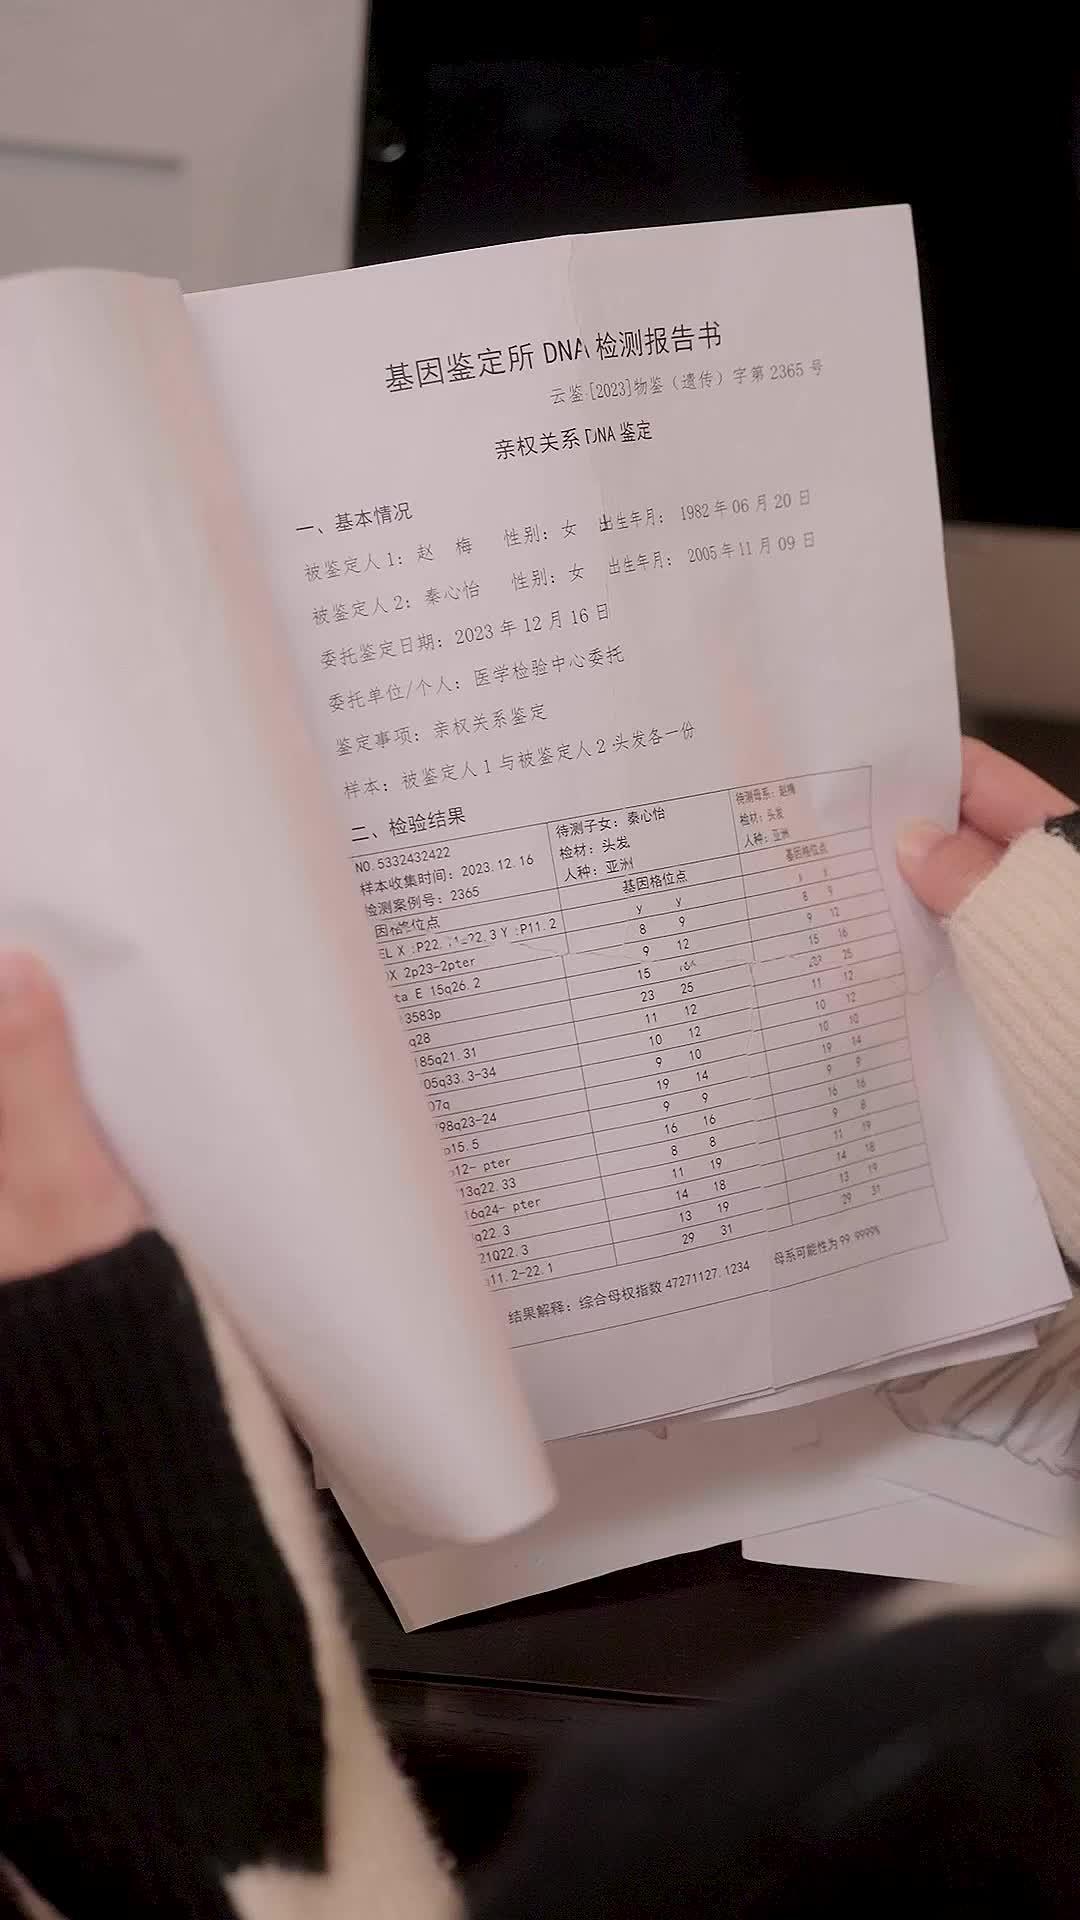 基因鉴定所 DNA 检测报告书
云鉴[2023]物鉴（遗传）字第 2365 号
亲权关系 DNA 鉴定
一、基本情况
被鉴定人 1：赵 梅 性别：女 出生年月：1982 年 06 月 20 日
被鉴定人 2：秦心怡 性别：女 出生年月：2005 年 11 月 09 日
委托鉴定日期：2023 年 12 月 16 日
委托单位/个人：医学检验中心委托
鉴定事项：亲权关系鉴定
样本：被鉴定人 1 与被鉴定人 2 头发各一份
二、检验结果
NO.5332432422
样本收集时间：2023.12.16
检测案例号：2365
待测子女：秦心怡
检材：头发
人种：亚洲
待测母系：赵梅
检材：头发
人种：亚洲
因格位点 基因格位点 基因格位点
y y y y
8 9 8 9
X 2p23-2pter 9 12 9 12
ta E 15q26.2 15 15 16
3583p 23 25 25
q28 11 12 11 12
85q21.31 10 12 10 12
05q33.3-34 9 10 10 10
07q 19 14 19 14
98q23-24 9 9 9 9
p15.5 16 16 16 16
p12- pter 8 8 9 8
13q22.33 11 19 11 19
16q24- pter 14 18 14 18
q22.3 13 19 13 19
21Q22.3 29 31 29 31
q11.2-22.1
结果解释：综合母权指数 47271127.1234 母系可能性为 99.9999%